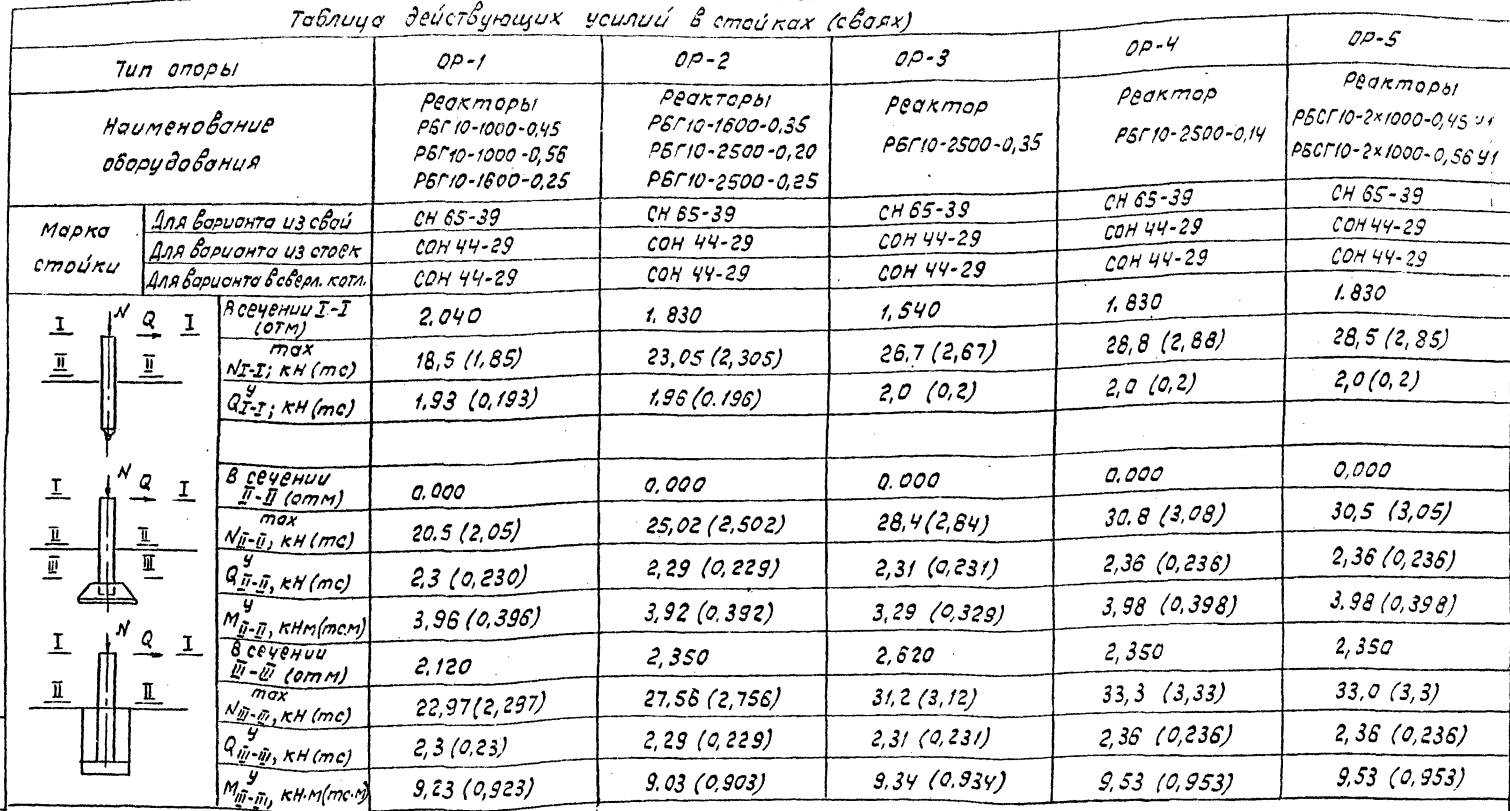 Таблица действующих усилий в стойках (сваях)
Тип опоры ОР-1 ОР-2 ОР-3 ОР-4 ОР-5
Наименование оборудования
Реакторы
РБГ10-1000-0,45
РБГ10-1000-0,56
РБГ10-1600-0,25
Реакторы
РБГ10-1600-0,35
РБГ10-2500-0,20
РБГ10-2500-0,25
Реактор
РБГ10-2500-0,35
Реактор
РБГ10-2500-0,14
Реакторы
РБСГ10-2×1000-0,45 У1
РБСГ10-2×1000-0,56 У1
Марка стойки
Для варианта из свай СН 65-39 СН 65-39 СН 65-39 СН 65-39 СН 65-39
Для варианта из стоек СОН 44-29 СОН 44-29 СОН 44-29 СОН 44-29 СОН 44-29
Для варианта в сверл. котл. СОН 44-29 СОН 44-29 СОН 44-29 СОН 44-29 СОН 44-29
I N Q I
II II
В сечении I-I (отм) 2,040 1.830 1,540 1.830 1.830
max N I-I; кН (тс) 18,5 (1,85) 23,05 (2,305) 26,7 (2,67) 28,8 (2,88) 28,5 (2,85)
Q у I-I; кН (тс) 1,93 (0,193) 1.96 (0.196) 2,0 (0,2) 2,0 (0,2) 2,0 (0,2)
I N Q I
II II
III III
В сечении II-II (отм) 0.000 0,000 0.000 0.000 0,000
max N II-II, кН (тс) 20.5 (2,05) 25,02 (2,502) 28,4 (2,84) 30.8 (3,08) 30,5 (3,05)
Q у II-II, кН (тс) 2,3 (0,230) 2,29 (0,229) 2,31 (0,231) 2,36 (0,236) 2,36 (0,236)
M у II-II, кНм (тс.м) 3,96 (0,396) 3,92 (0.392) 3,29 (0,329) 3,98 (0,398) 3.98 (0,398)
I N Q I
II II
В сечении III-III (отм) 2.120 2,350 2,620 2,350 2,350
max N III-III, кН (тс) 22,97 (2,297) 27,56 (2,756) 31,2 (3,12) 33,3 (3,33) 33,0 (3,3)
Q у III-III, кН (тс) 2,3 (0,23) 2,29 (0,229) 2,31 (0,231) 2,36 (0,236) 2,36 (0,236)
M у III-III, кН.м (тс.м) 9,23 (0,923) 9.03 (0,903) 9,34 (0,934) 9,53 (0,953) 9,53 (0,953)